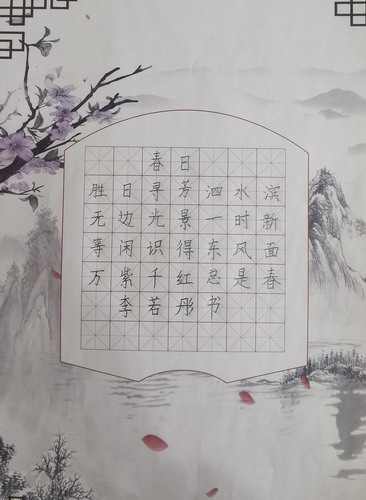 春日
胜日寻芳泗水滨
无边光景一时新
等闲识得东风面
万紫千红总是春
李若彤书